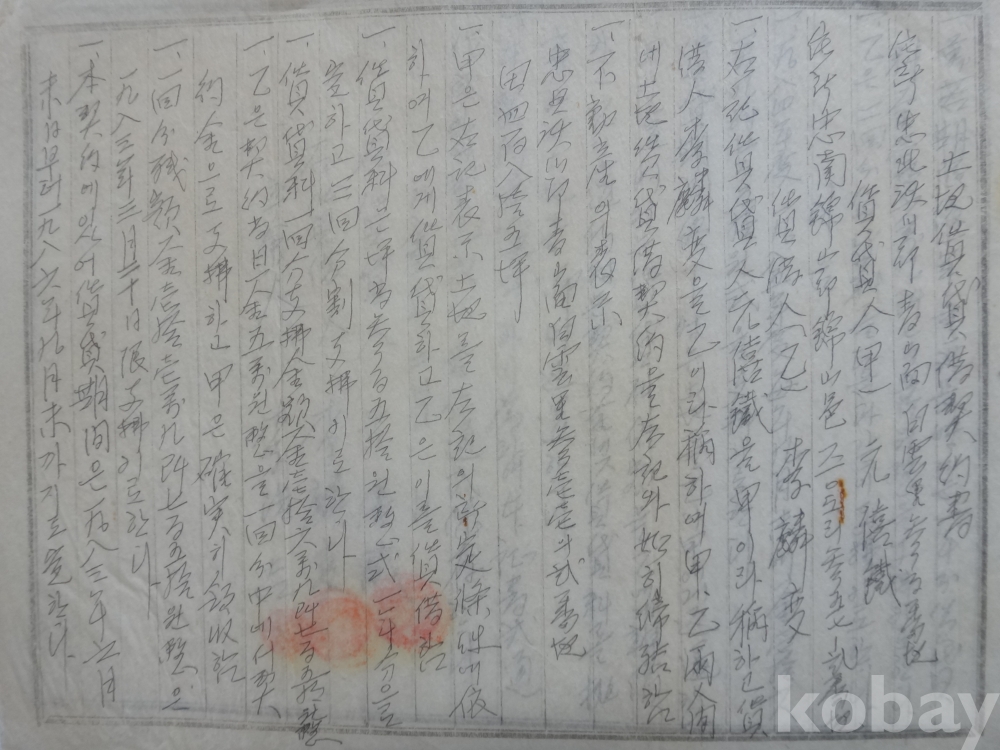 土地賃貸借契約書
住所 忠北沃川郡青山面白雲里 番地
賃貸人(甲) 元 禧 鐵
住所 忠南錦山郡錦山邑 番地
賃借人(乙) 李 麟 夔
一. 右記 賃貸人 元禧鐵을 甲이라 稱하고 賃
借人 李麟夔을 乙이라 稱하며 甲 乙 兩人 間
에 土地 賃貸借 契約을 左記와 如히 締結함
一. 不動産의 表示
忠北 沃川郡 青山面 白雲里 參壱壱의 弐番地
田 四百八拾五坪
一. 甲은 右記 表示 土地를 左記의 所定 條件에 依
하여 乙에게 賃貸하고 乙은 이를 賃借함
一. 賃貸料은 坪當 參百五拾원整式 年分을
定하고 三回 分割 支拂이로 한다
一. 賃貸料 一回分 支拂 金額 金壱拾六萬九阡七百五拾원整
一. 乙은 契約 當日 金五萬원整을 一回分中에서 契
約金으로 支拂하고 甲은 確實히 領收함
一. 一回分 殘額 金壱拾壱萬九阡七百五拾원整은
一九八三年 三月 二十日 限 支拂이로 한다
一. 本契約에 있어 賃貸期間은 一九八三年 月
末日부터 一九八六年 九月末까지로 한다
kobay